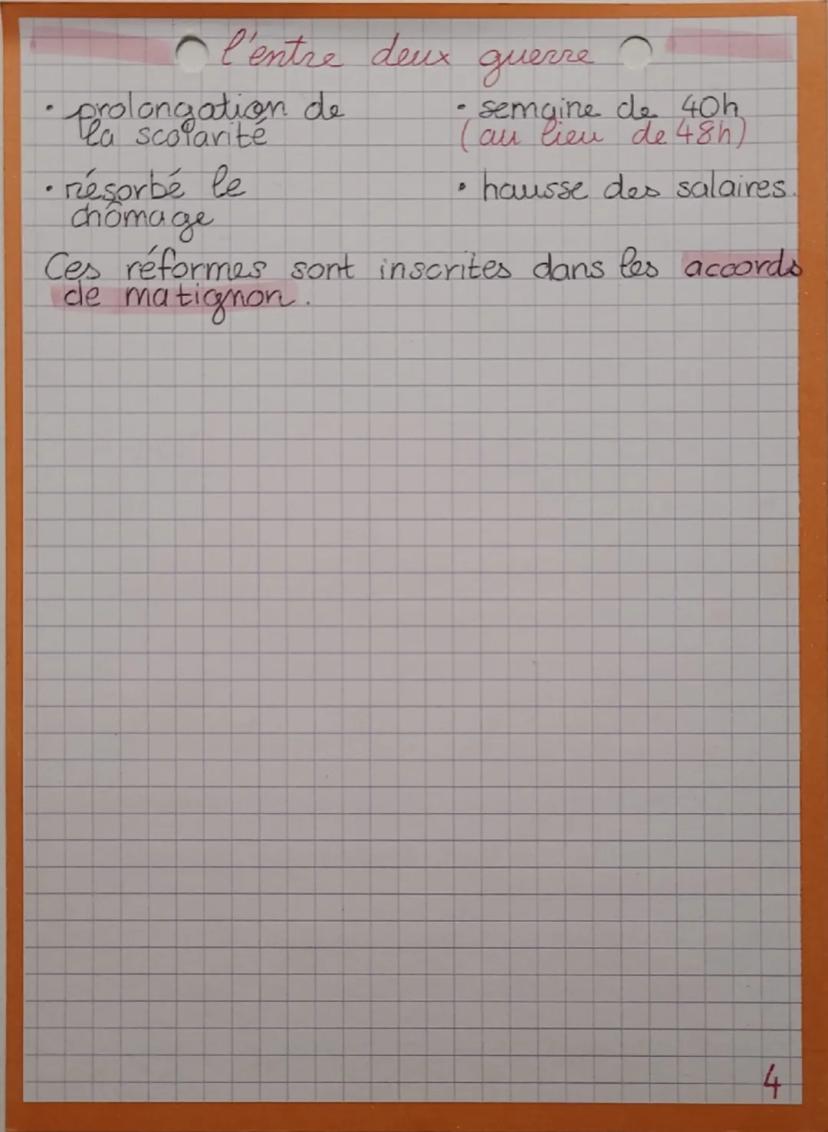 l'entre deux guerre
• prolongation de
la scolarité
• résorbé le
chômage
• semaine de 40h
(au lieu de 48h)
• hausse des salaires.
Ces réformes sont inscrites dans les accords
de matignon.
4